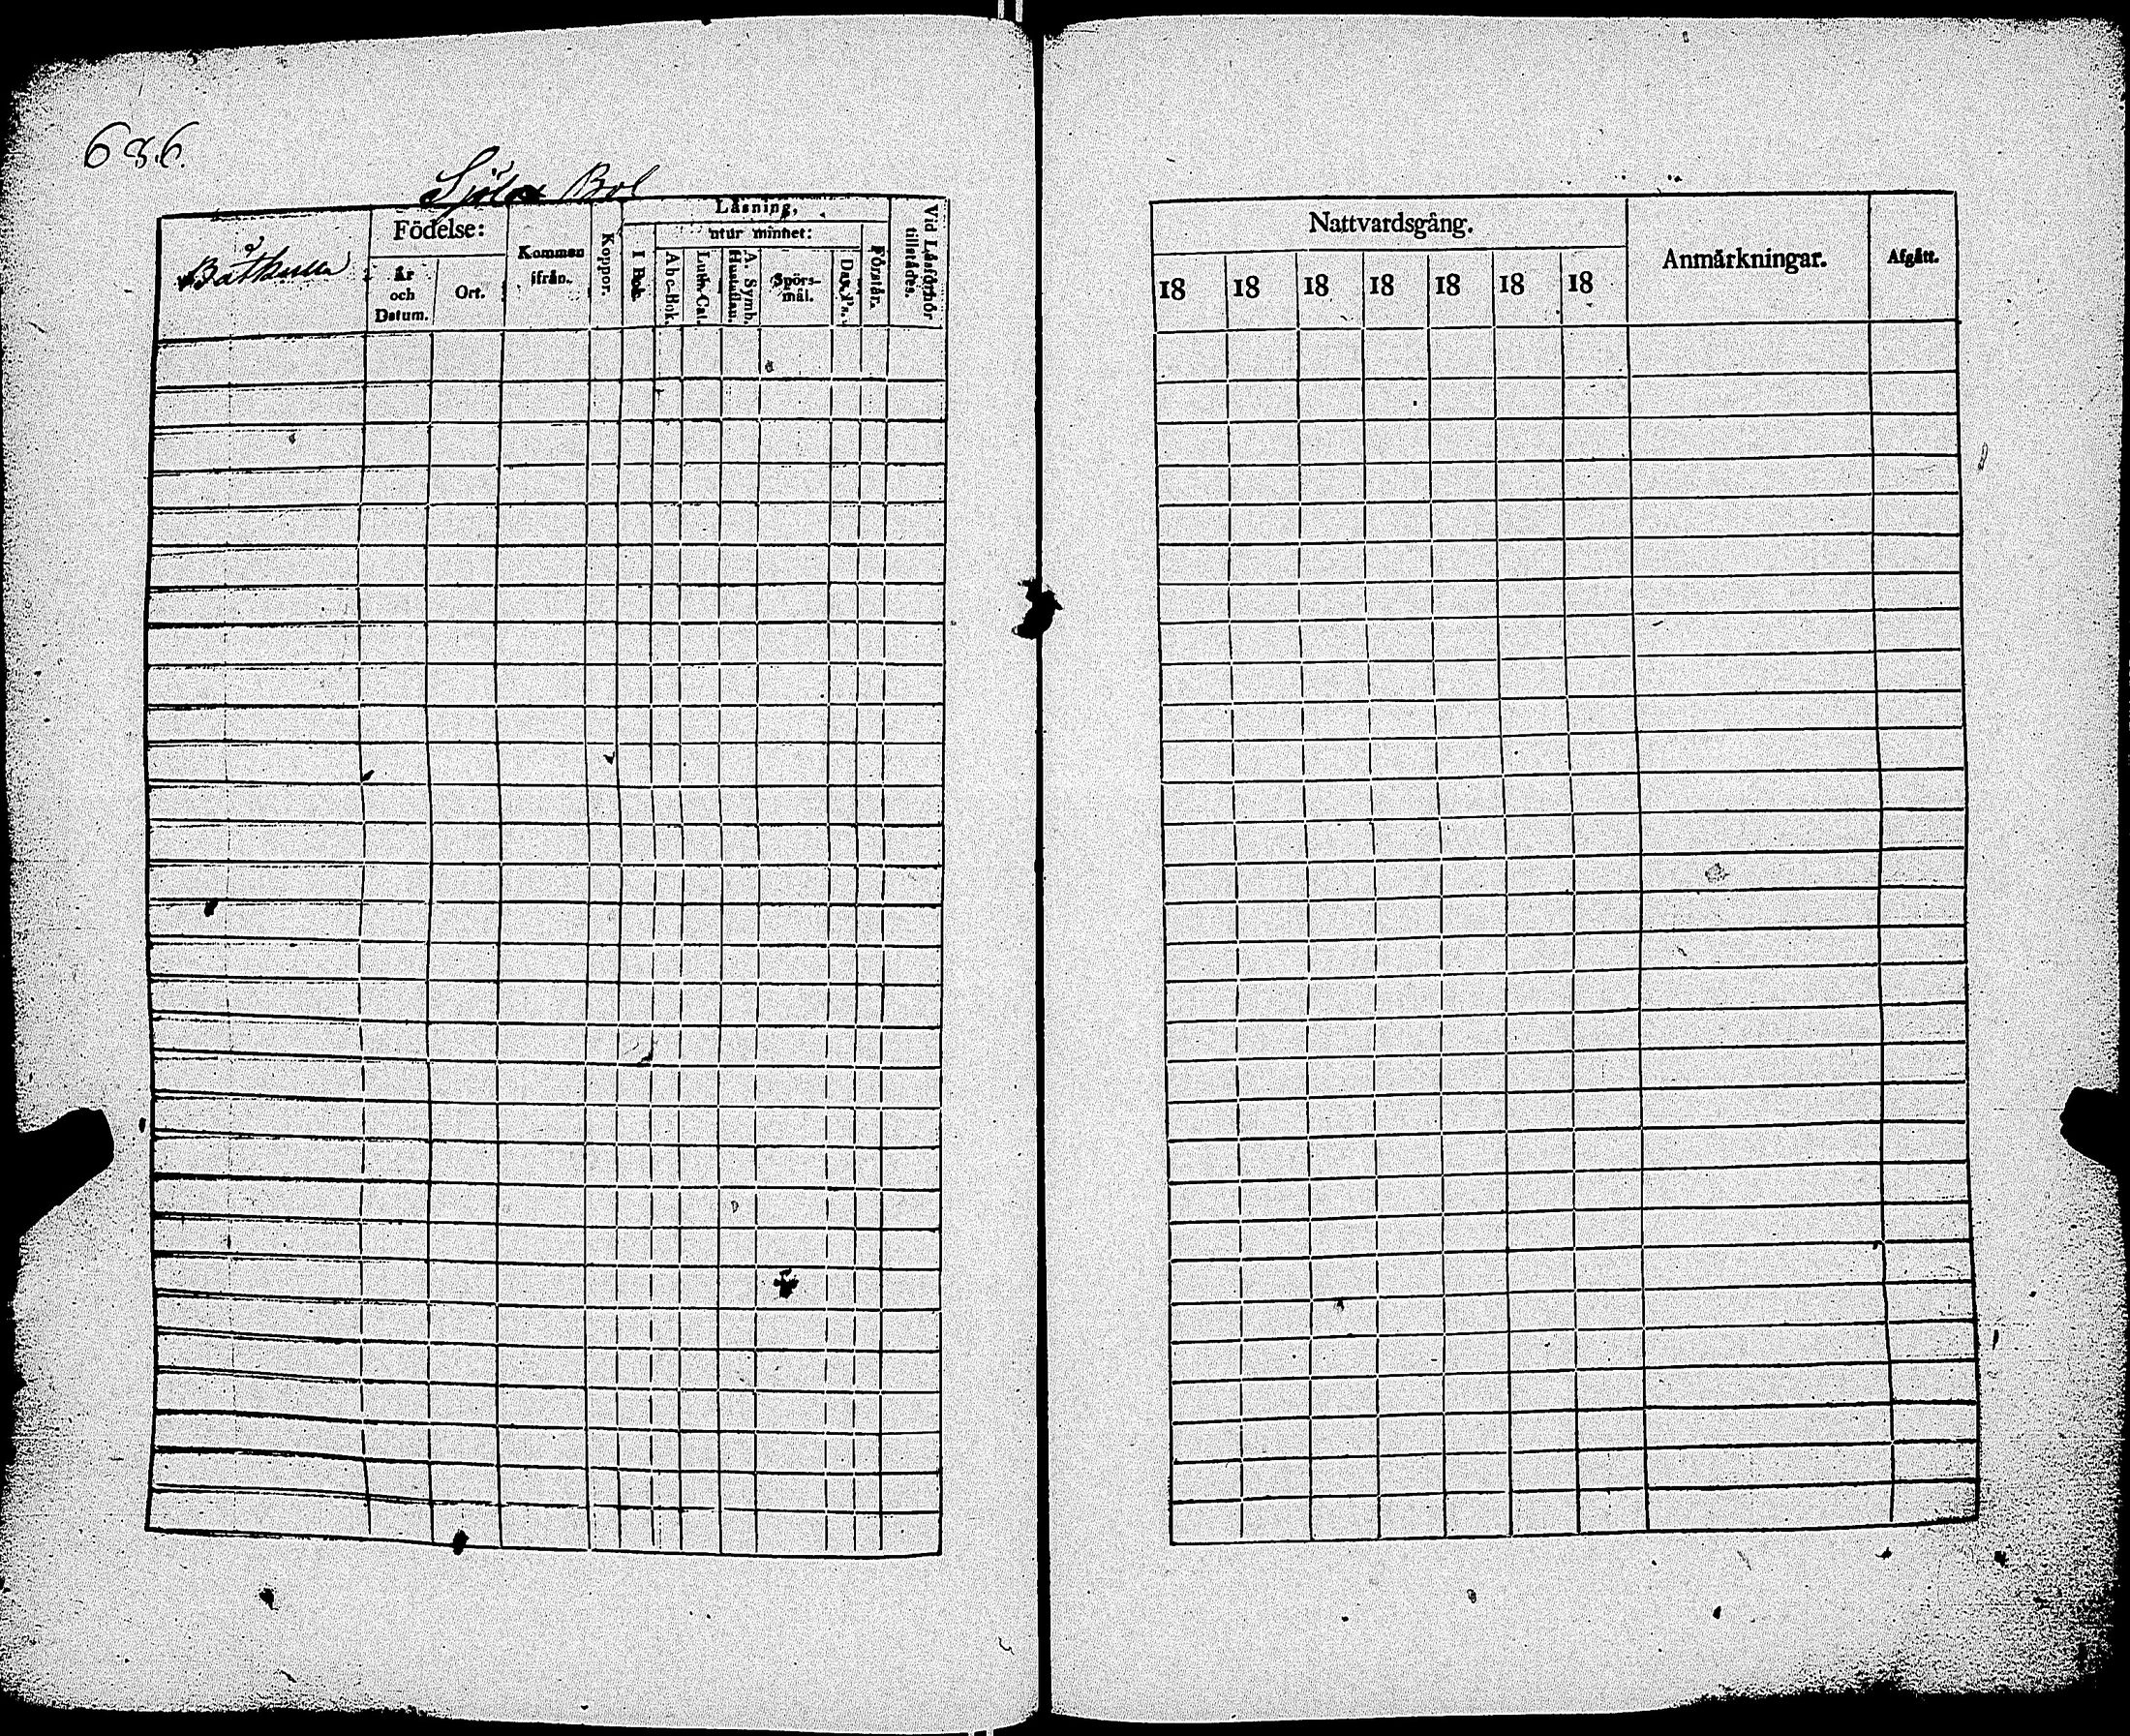 686.
Sjötor Bol
Båtkulla
Födelse:
År
och
Datum.
Ort.
Kommen
ifrån.
Koppor.
Läsning,
I Bok.
utur minnet:
Abc-Bok.
Luth. Cat.
A. Symb.
Hustaflan.
Spörs-
mål.
Dav. Ps.
Förstår.
Vid Läsförhör
tillstädes.
Nattvardsgång.
18 18 18 18 18 18 18
Anmärkningar.
Afgått.